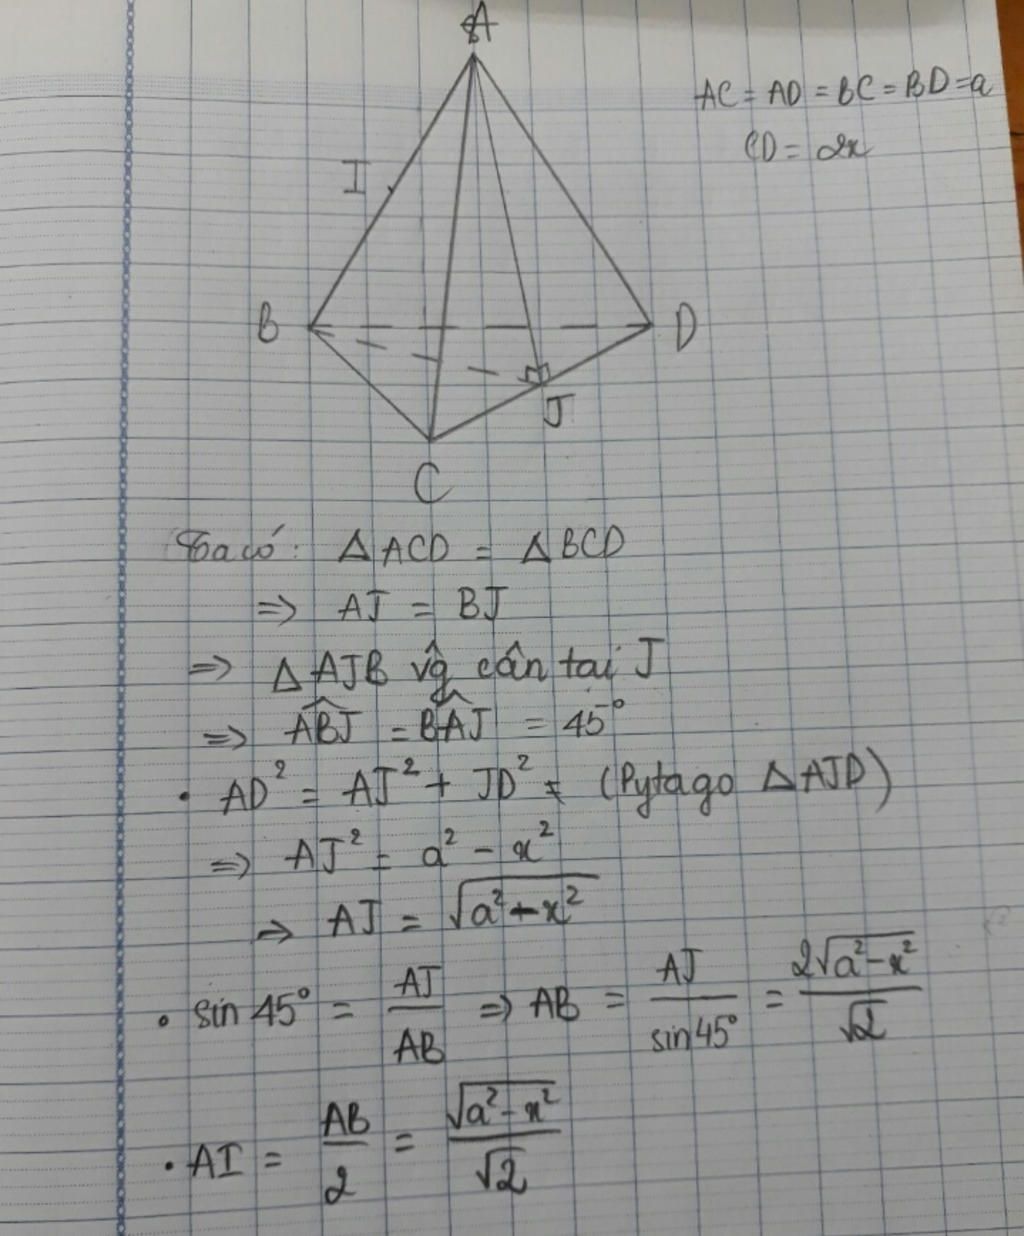 A
AC = AD = BC = BD = a
CD = 2x
I
B
D
J
C
Ta có: ΔACD = ΔBCD
=> AJ = BJ
=> ΔAJB vg cân tai J
=> \widehat{ABJ} = \widehat{BAJ} = 45°
• AD² = AJ² + JD² = (Pytago ΔAJD)
=> AJ² = a² - x²
=> AJ = √(a² - x²)
• sin 45° = AJ/AB => AB = AJ/sin45° = 2√(a² - x²)/√2
• AI = AB/2 = √(a² - x²)/√2